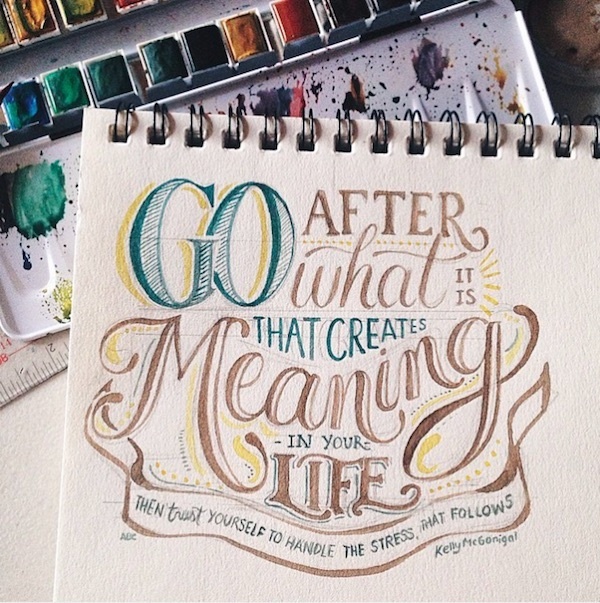 GO AFTER
what IT IS
THAT CREATES
Meaning
- IN YOUR -
LIFE
THEN trust YOURSELF TO HANDLE THE STRESS, THAT FOLLOWS
Kelly McGonigal